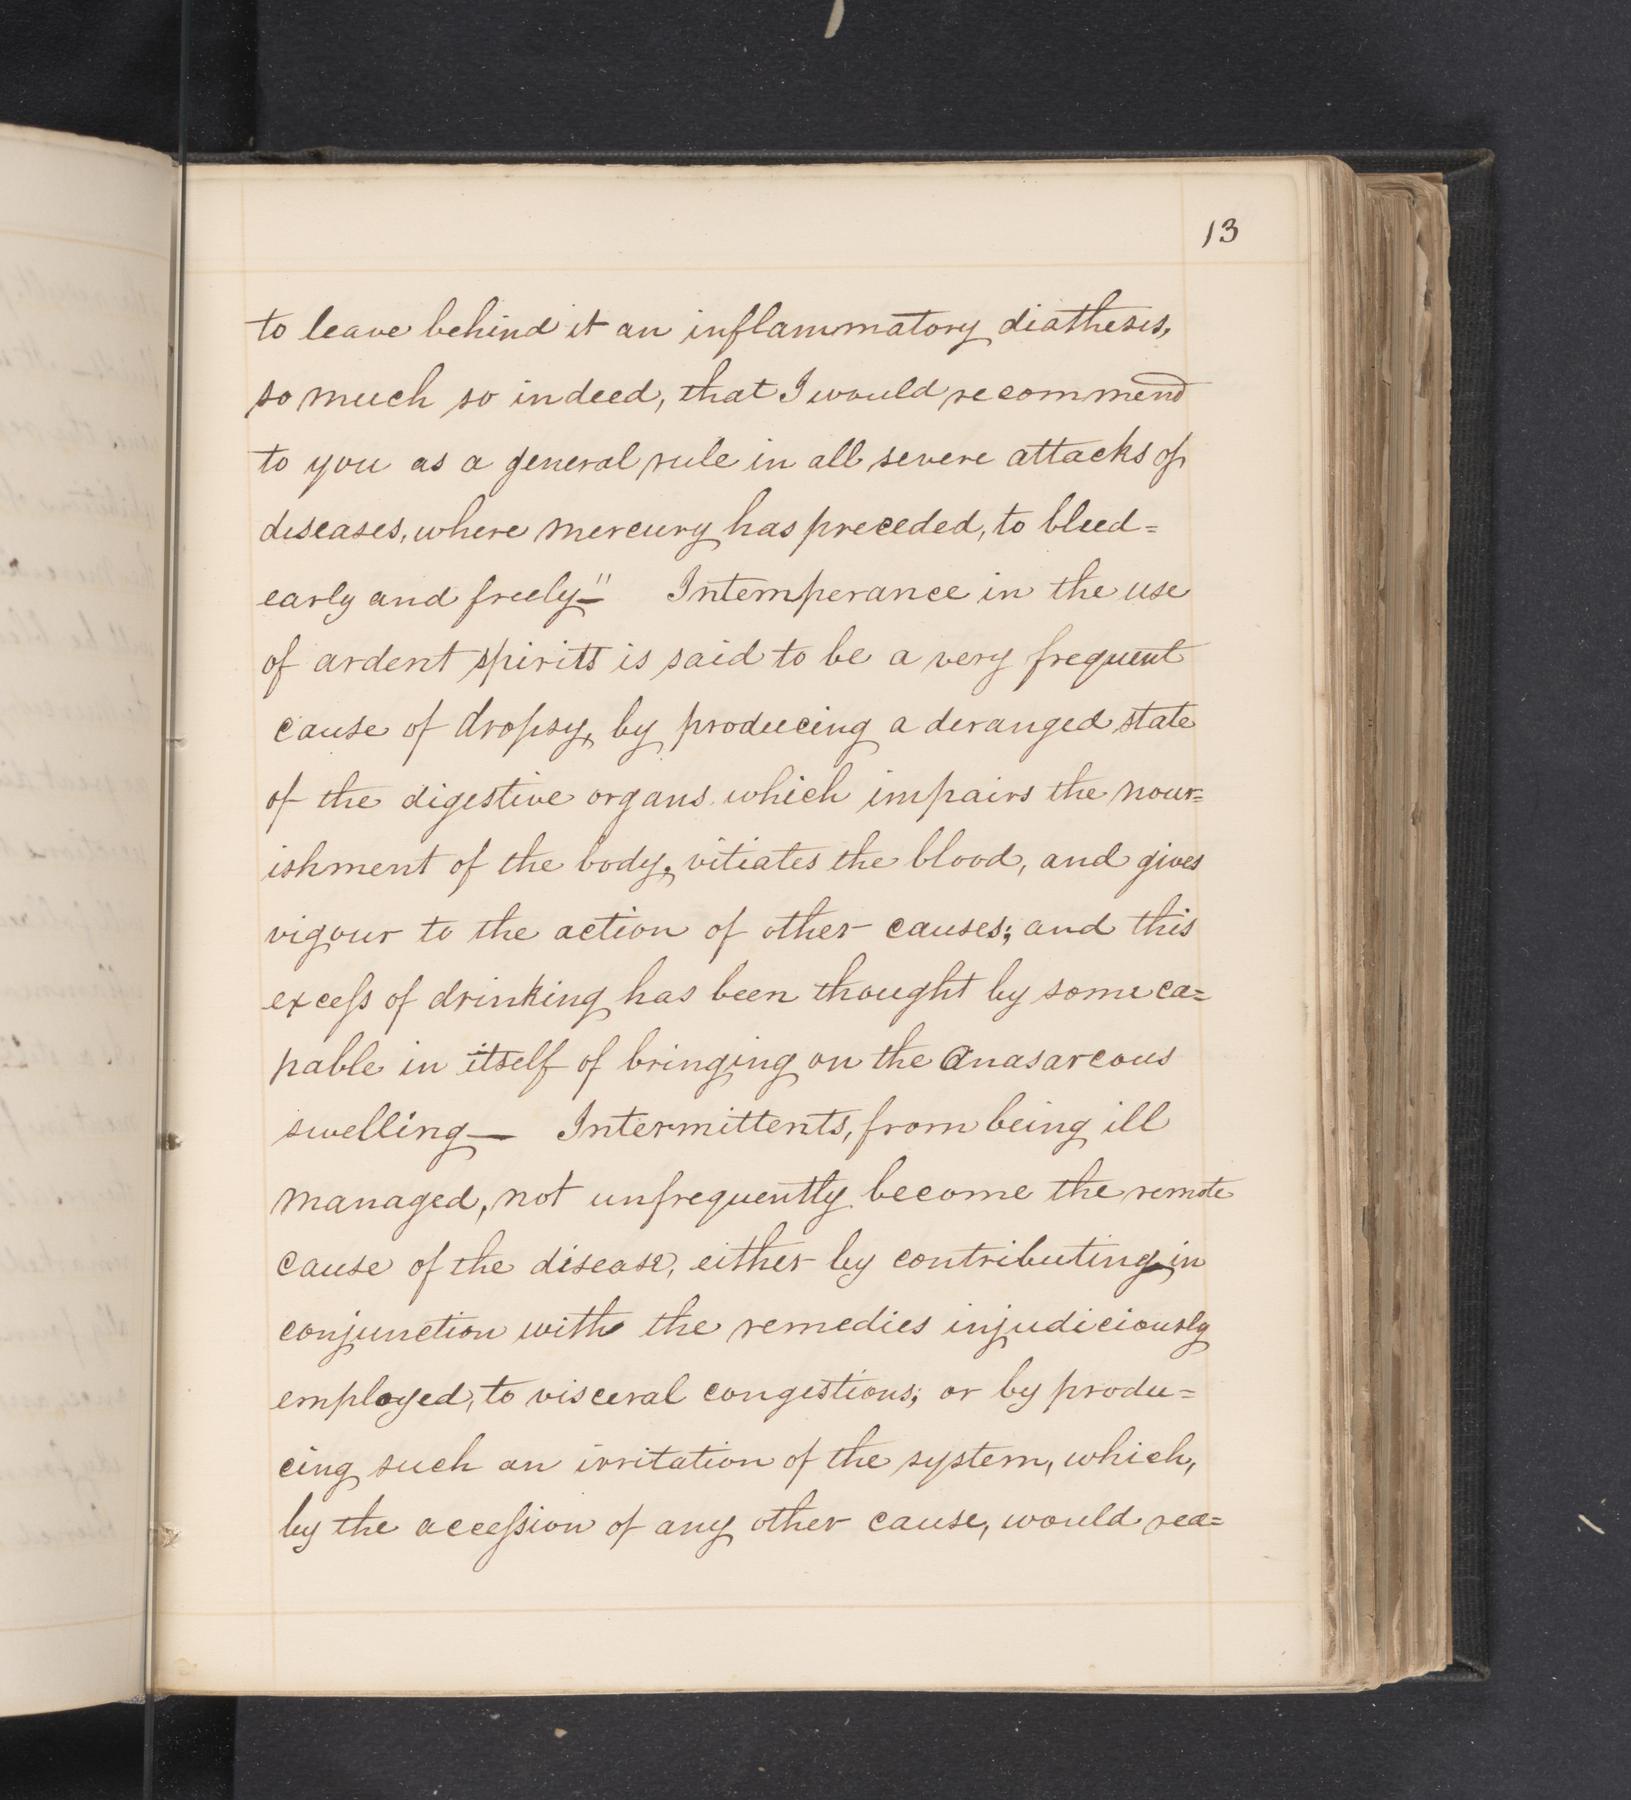 13
to leave behind it an inflammatory diathesis,
so much so indeed, that I would recommend
to you as a general rule in all severe attacks of
diseases, where mercury has preceded, to bleed=
early and freely"— Intemperance in the use
of ardent spirits is said to be a very frequent
cause of dropsy, by producing a deranged state
of the digestive organs which impairs the nour=
ishment of the body, vitiates the blood, and gives
vigour to the action of other causes; and this
exceſs of drinking has been thought by some ca=
pable in itself of bringing on the Anasarcous
swelling— Intermittents, from being ill
managed, not unfrequently become the remote
cause of the disease, either by contributing in
conjunction with the remedies injudiciously
employed, to visceral congestions; or by produ=
cing such an irritation of the system, which,
by the acceſsion of any other cause, would rea=